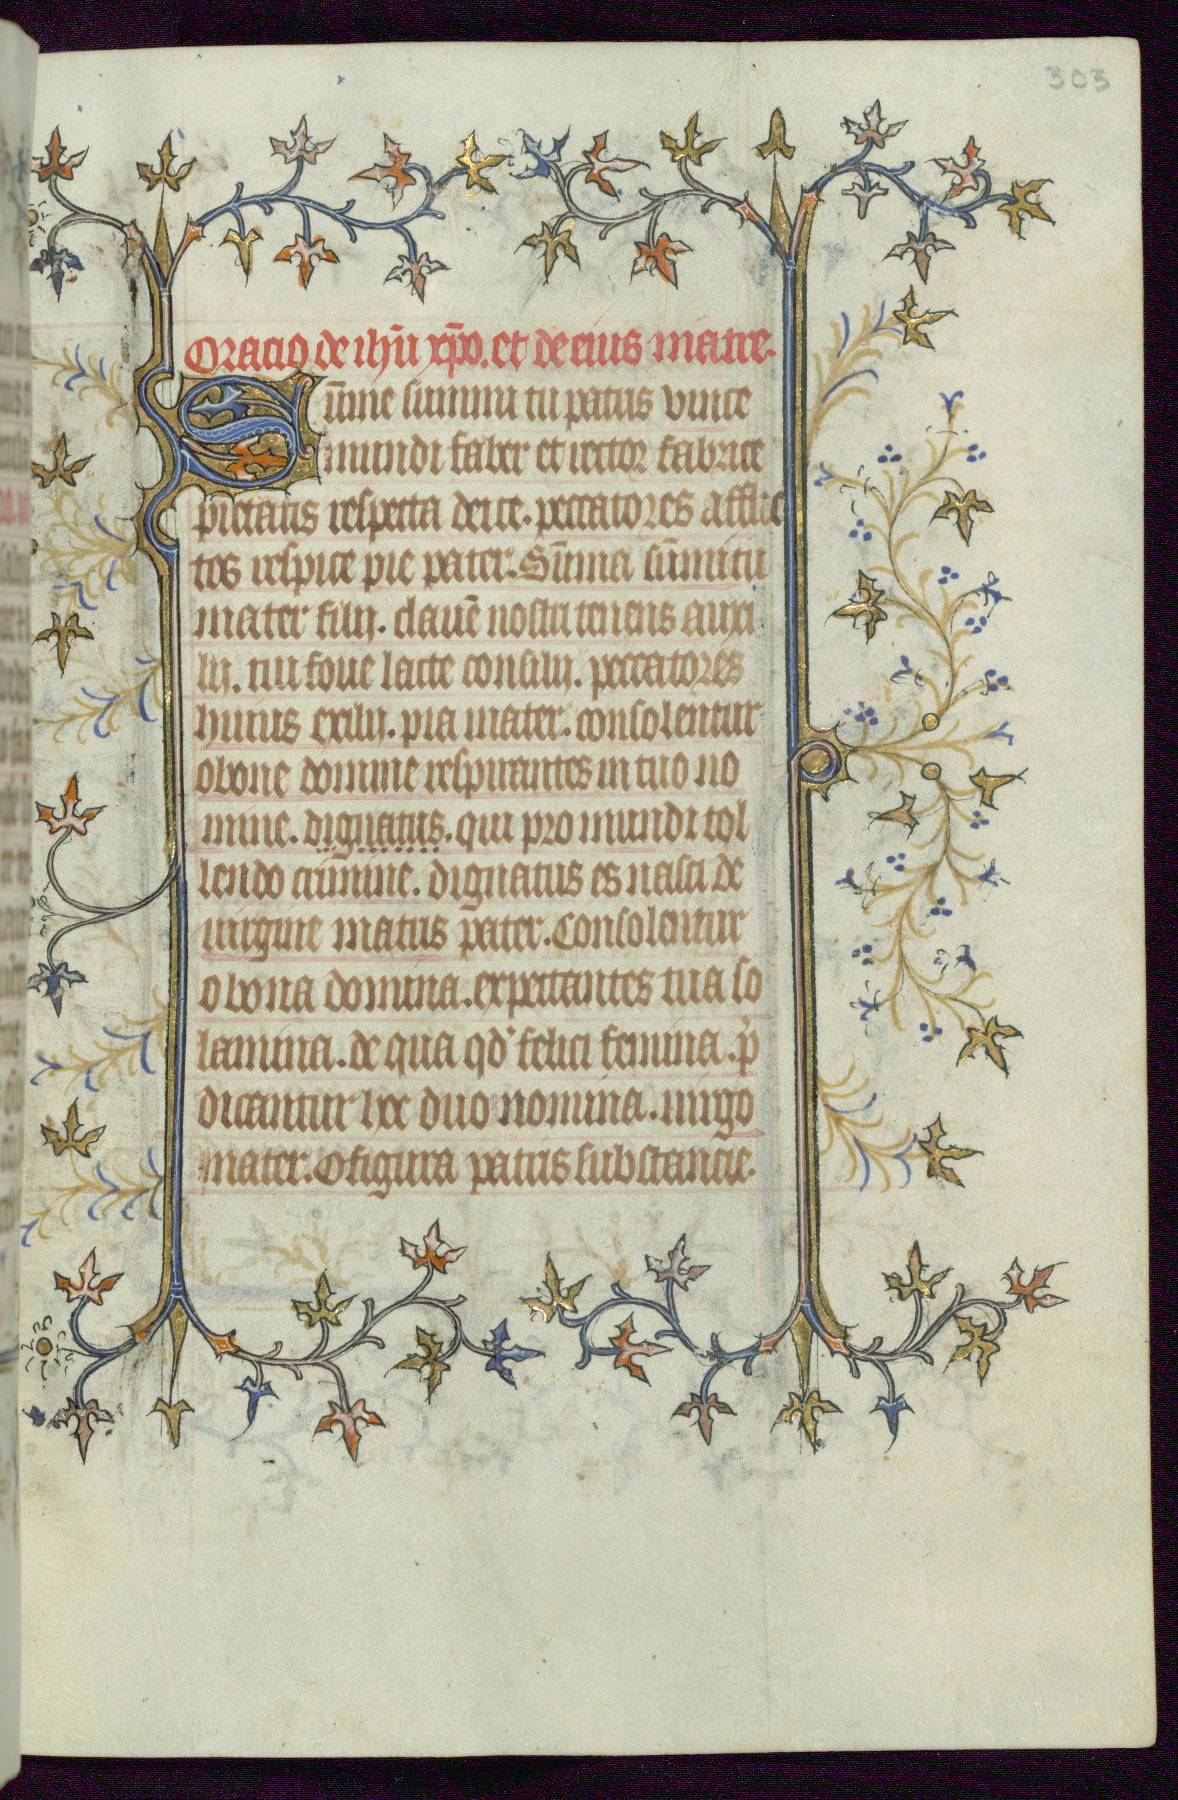 303
Oracio de ihũ xp̃o. et de eius matre.
Sũme summi tu patris vnice
mundi faber et rector fabrice
pietatis respecta deice. peccatores afflic
tos respice pie pater. Sũma sũmi tu
mater filij. clauẽ nostri tenens auxi
lij. tui foue lacte consilij. peccatores
huius exilij. pia mater. consolentur
o bone domine respirantes in tuo no
mine. dignatus. qui pro mundi tol
lendo crimine. dignatus es nasci de
uirgine matris pater. Consolentur
o bona domina. expectantes tua so
lamina. de qua qd' felici femina. p̃
dicantur hec duo nomina. uirgo
mater. O figura patris substancie.